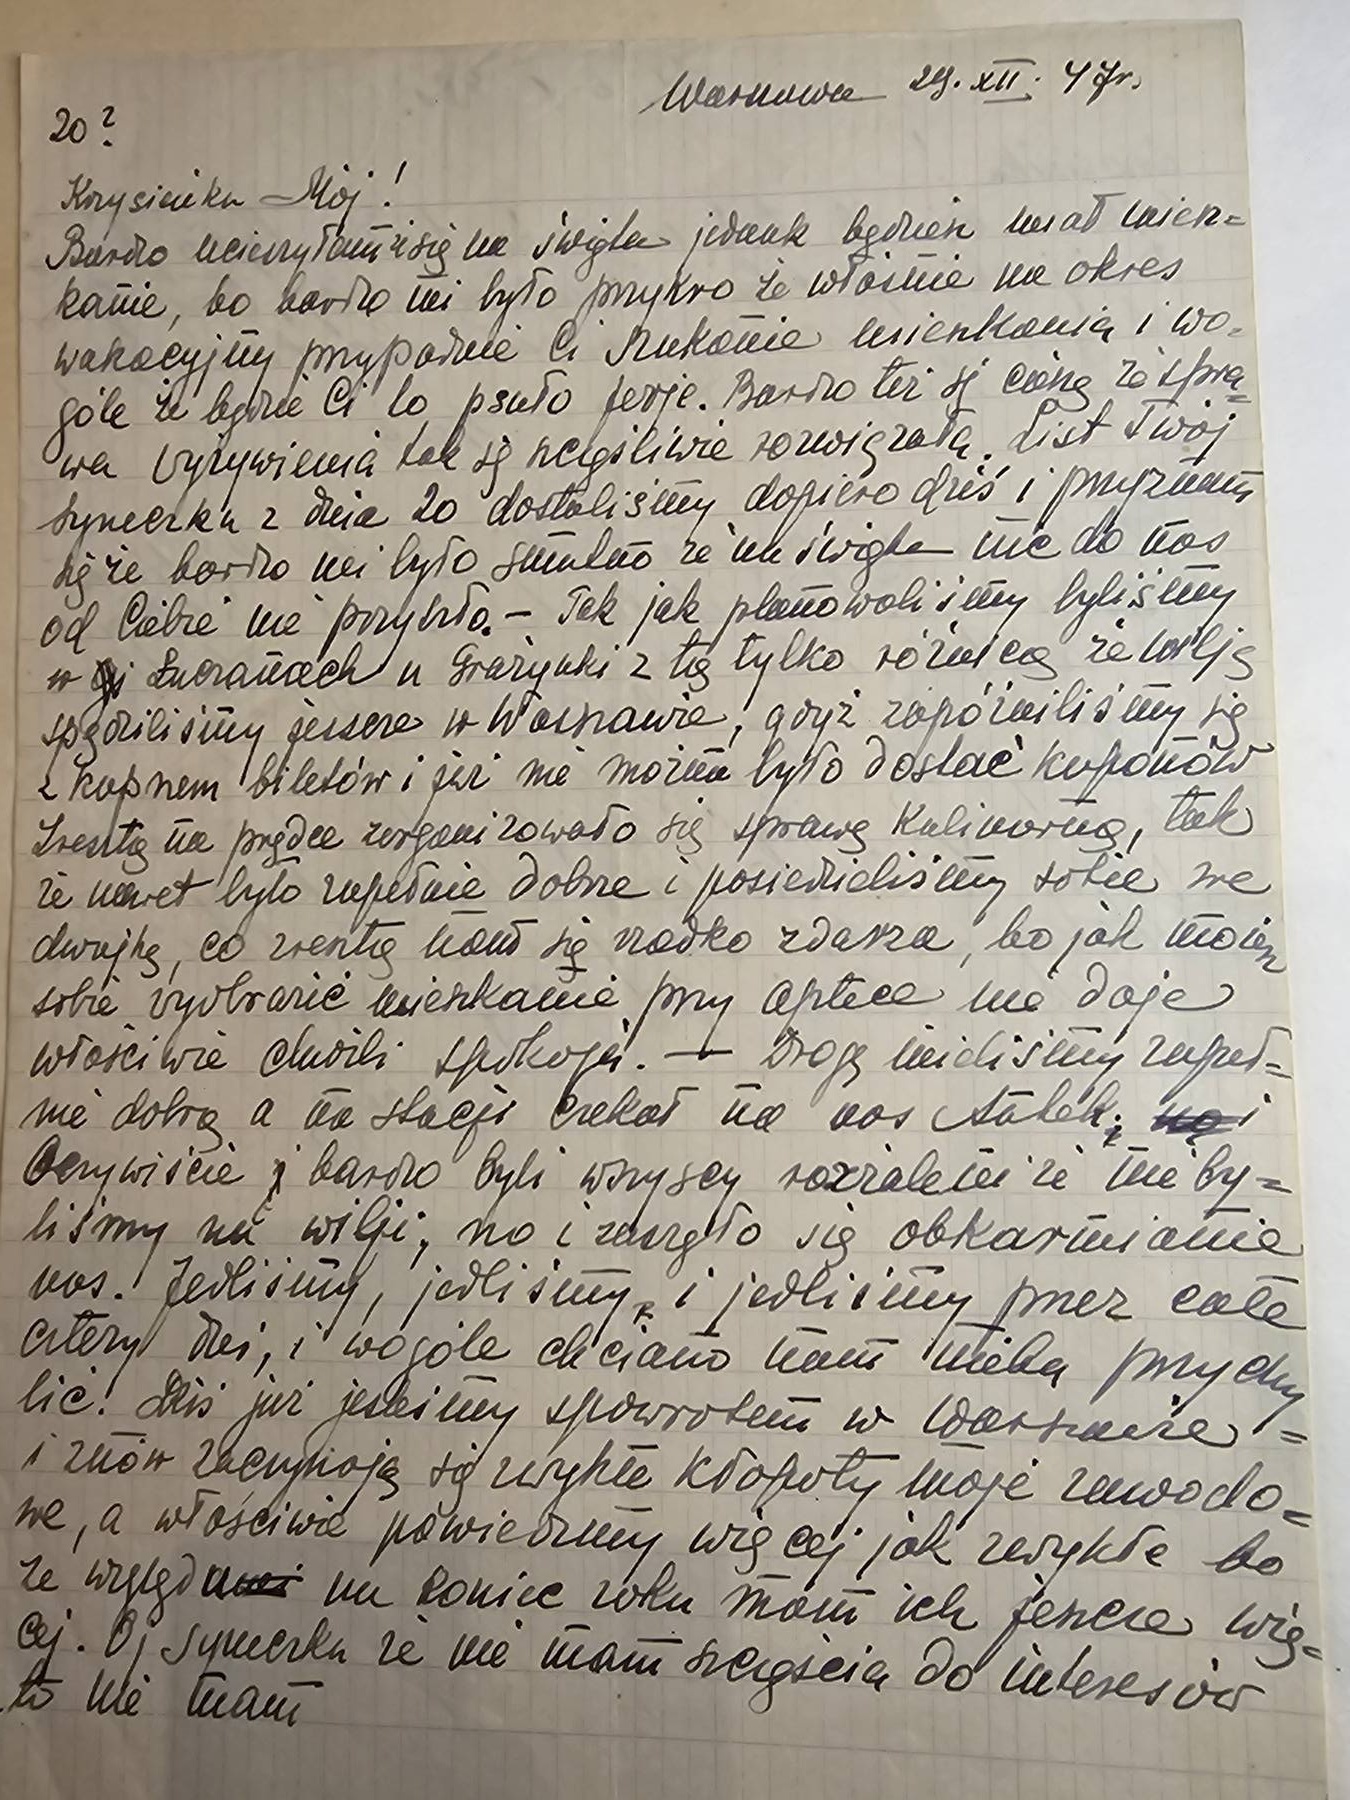 Warszawa 29. XII. 47r.
20?
Krzysieńku Mój!
Bardzo ucieszyłam się że na święta jednak będziesz miał miesz=
kanie, bo bardzo mi było przykro że właśnie na okres
wakacyjny przypadnie Ci szukanie mieszkania i wo=
góle że będzie Ci to psuło ferje. Bardzo też się cieszę że spra=
wa wyżywienia tak się szczęśliwie rozwiązała. List Twój
Syneczku z dnia 20 dostaliśmy dopiero dziś i przyznam
się że bardzo mi było smutno że na święta nic do nas
od Ciebie nie przyszło. — Tak jak planowaliśmy byliśmy
w u Grażynki z tą tylko różnicą że wilję
spędziliśmy jeszcze w Warszawie, gdyż zapóźniliśmy się
z kupnem biletów i już nie można było dostać kuponów
Zresztą na prędce zorganizowało się sprawę kulinarną, tak
że nawet było zupełnie dobrze i posiedzieliśmy sobie we
dwójkę, co zresztą nam się rzadko zdarza, bo jak możesz
sobie wyobrazić mieszkanie przy aptece nie daje
właściwie chwili spokoju. — Drogę mieliśmy zupeł=
nie dobrą a na stacji czekał na nas Antek; i
Oczywiście bardzo byli wszyscy rozżaleni że nie by=
liśmy na wilji; no i zaczęło się obkarmianie
nas. Jedliśmy, jedliśmy i jedliśmy przez całe
cztery dni, i wogóle chciano nam nieba przychy
lić. Dziś już jesteśmy spowrotem w Warszawie =
i znów zaczynają się zwykłe kłopoty moje zawodo=
we, a właściwie powiedzmy więcej jak zwykłe bo
ze względu na koniec roku mam ich jeszcze wię=
cej. Oj Syneczku że nie mam szczęścia do interesów
to nie mam